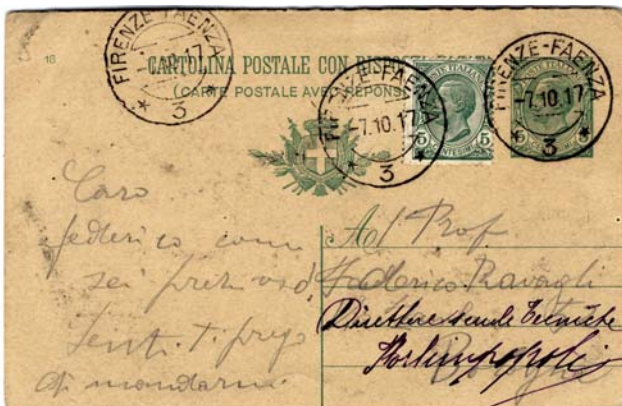 FIRENZE-FAENZA
-7.10.17
3
16
CARTOLINA POSTALE CON RISP
(CARTE POSTALE AVEC RÉPONS
FIRENZE-FAENZA
-7.10.17
3
POSTE ITALIANE
5 5
CENTESIMI
FIRENZE-FAENZA
-7.10.17
3
Caro
federico come
sei
Senti. Ti prego
di mandarmi
A l Prof
Federico Ravagli
Direttore scuole Tecniche